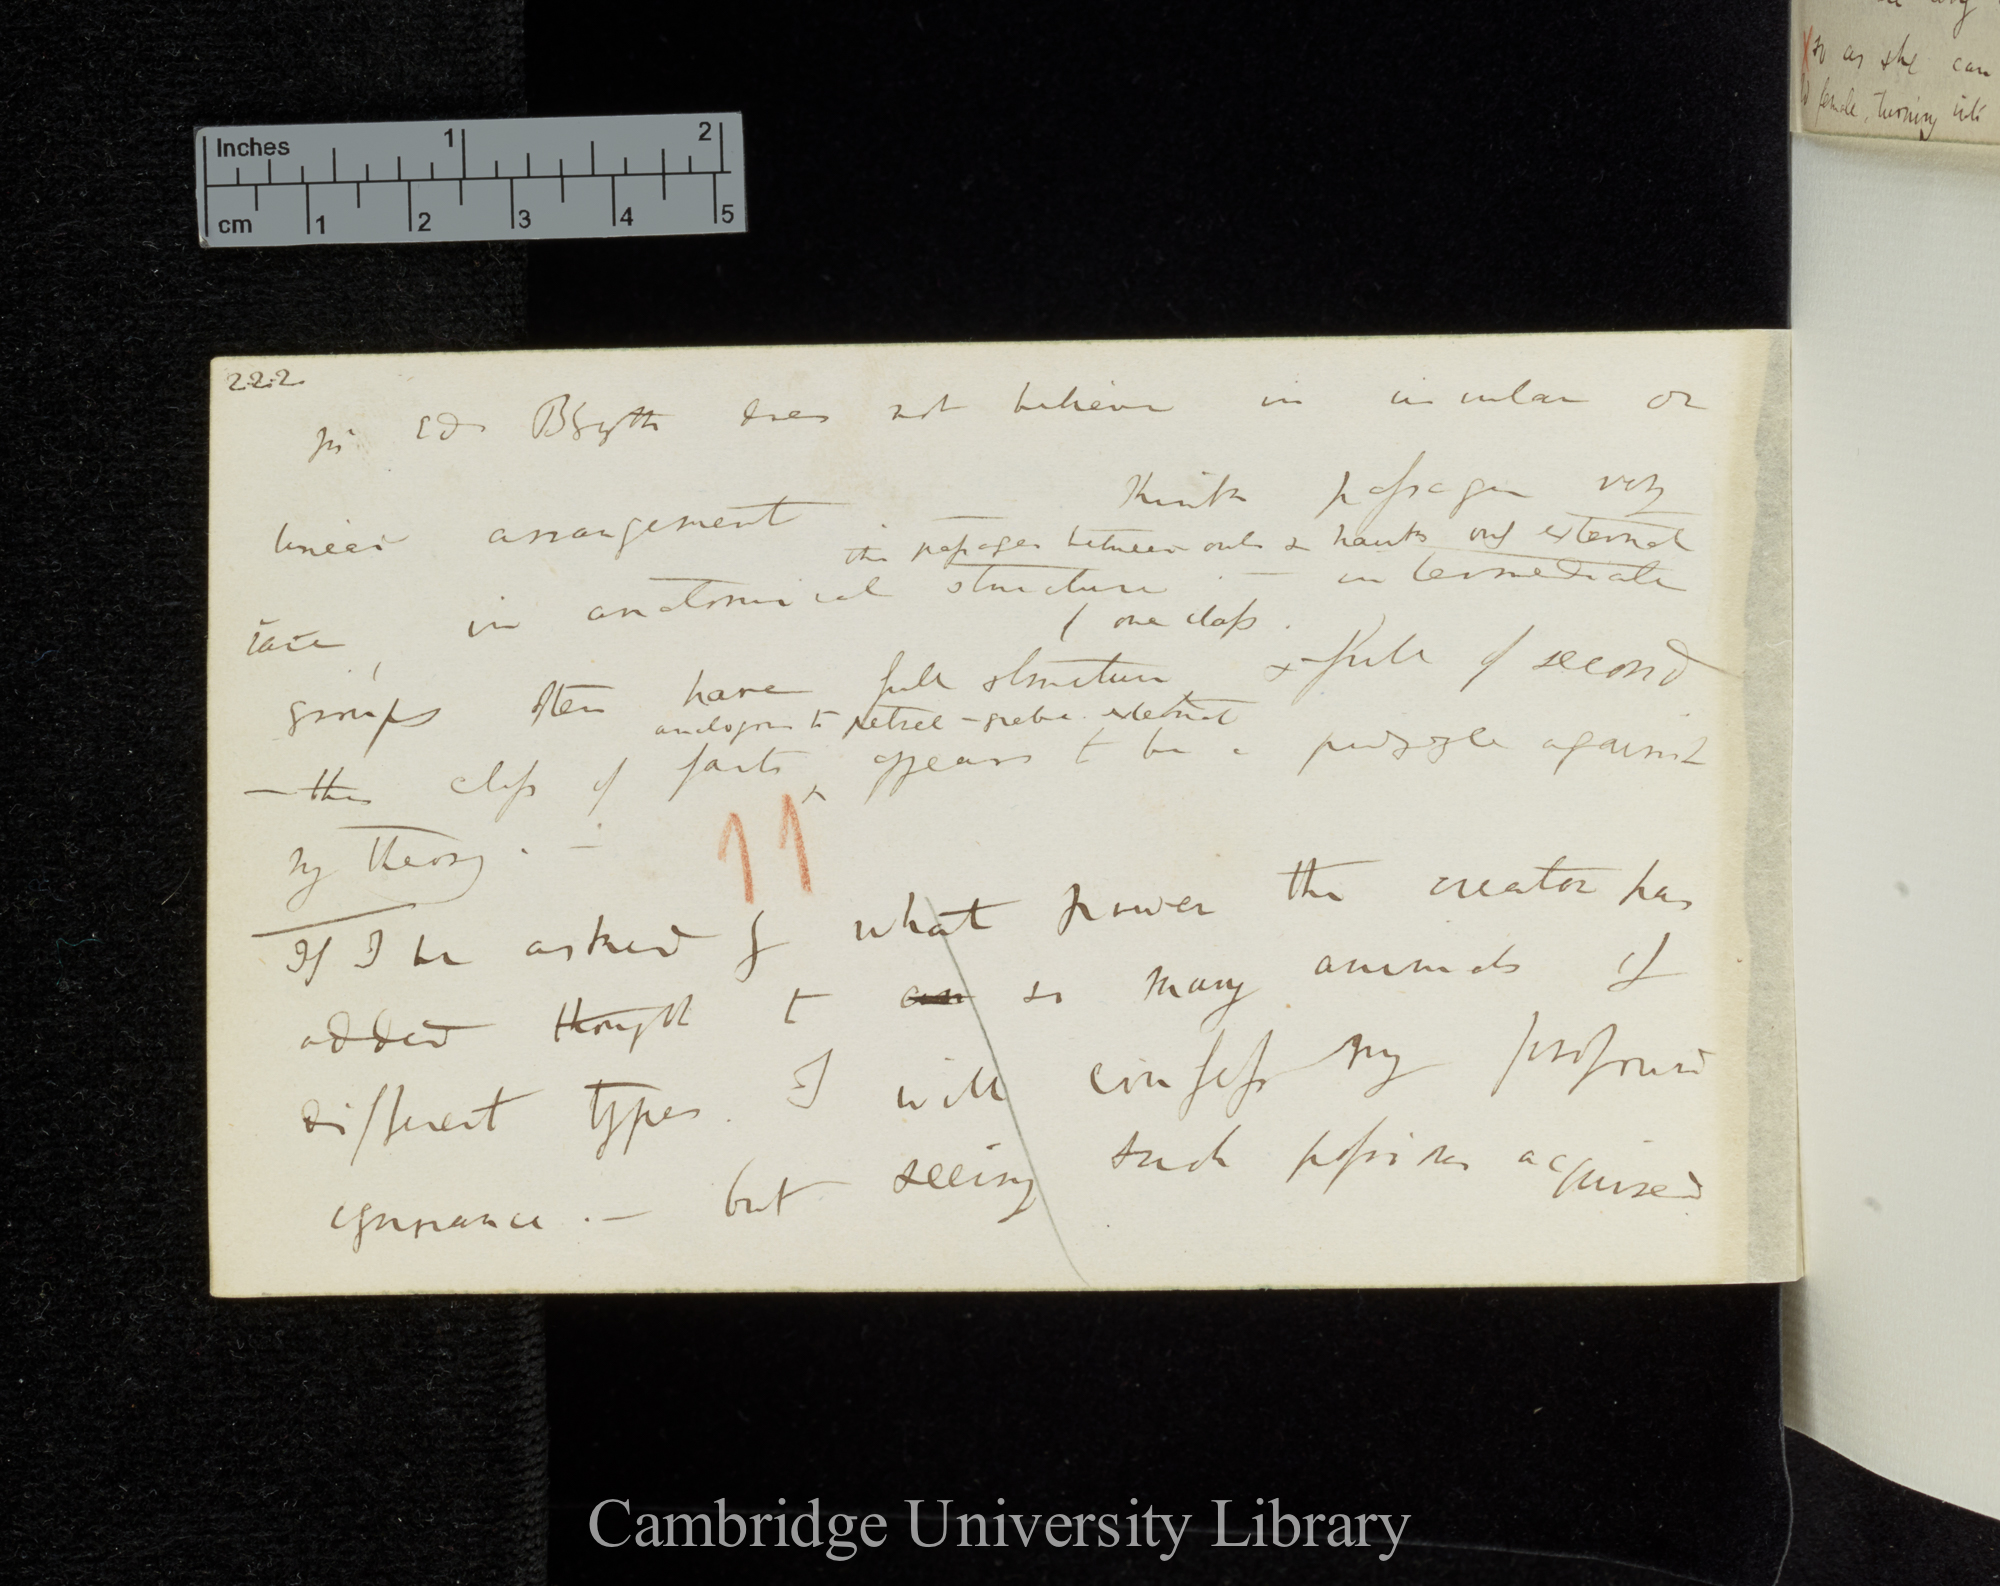 Inches 1 2
cm 1 2 3 4 5
so as she can
female, turning into
222
Mr Edw Blyth does not believe in circular or
linear arrangement thinks passages very
the passages between owls & hawks only external
rare in anatomical structure. — intermediate
of one class.
groups often have full structure & full of second
analogous to petrel-grebe external
— this class of facts ^ appears to be a puzzle against
my theory. —
11
If I be asked by what power the creator has
added thought to so many animals of
different types. I will confess my profound
ignorance. — but seeing such passions acquired
Cambridge University Library